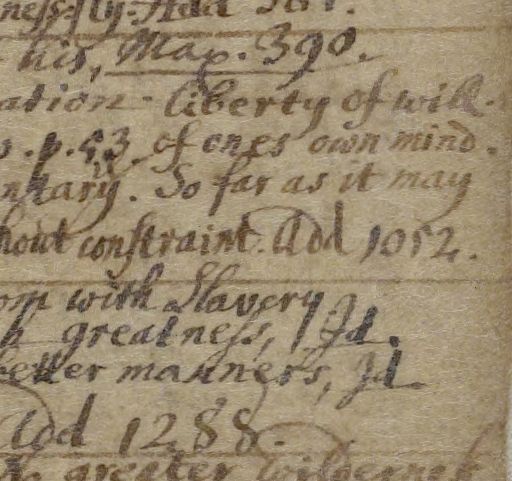 his, Max. 390.
ation. liberty of will.
p. 53. of ones own mind.
ntary. So far as it may
hout constraint. Add 1052.
om with Slavery
greatness, Jd.
better manners, Jd
Add 1288.
greater